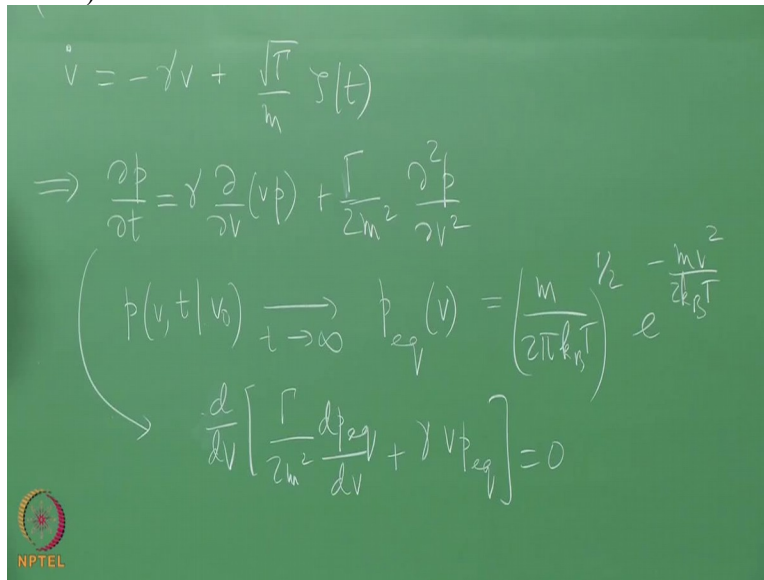 v̇ = -γv + √Γ/m ζ(t)
⇒ ∂p/∂t = γ ∂/∂v (vp) + Γ/2m² ∂²p/∂v²
p(v, t | v₀) → t→∞ p_eq(v) = (m/2πk_BT)^1/2 e^-mv²/2k_BT
d/dv [Γ/2m² dp_eq/dv + γ v p_eq] = 0
NPTEL